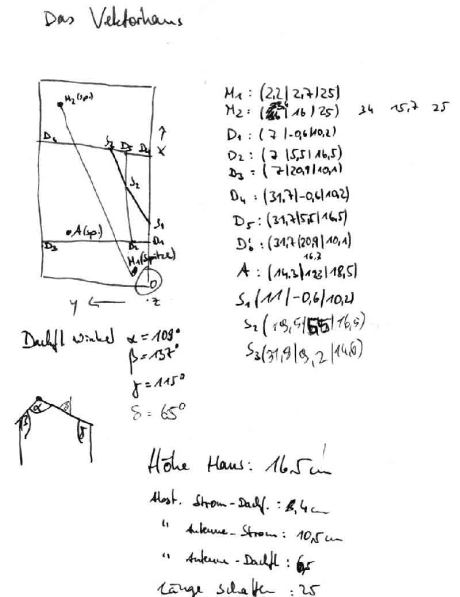 Das Vektorhaus
M₂ (Sp.)
D₆ S₃ D₅ D₄
x
S₂
A (Sp.)
S₁
D₃ D₂ D₁
M₁ (Spitze)
y z
M₁ : (2,2 | 2,7 | 25)
M₂ : ( | 16 | 25) 34 15,7 25
D₁ : (7 | -0,6 | 10,2)
D₂ : (7 | 5,5 | 16,5)
D₃ : (7 | 20,9 | 10,1)
D₄ : (31,7 | -0,6 | 10,2)
D₅ : (31,7 | 5,5 | 16,5)
D₆ : (31,7 | 20,9 | 10,1)
16,3
A : (14,3 | | 18,5)
S₁ (11 | -0,6 | 10,2)
S₂ (19,5 | 5,5 | 16,5)
S₃ (31,9 | 9,2 | 14,6)
Dachfl Winkel α = 109°
β = 137°
γ = 115°
δ = 65°
β α γ δ
Höhe Haus: 16,5 cm
Abst. Strom-Dachf. : 8,4 cm
" Antenne-Strom : 10,5 cm
" Antenne-Dachfl : 6,5
Länge Schatten : 25